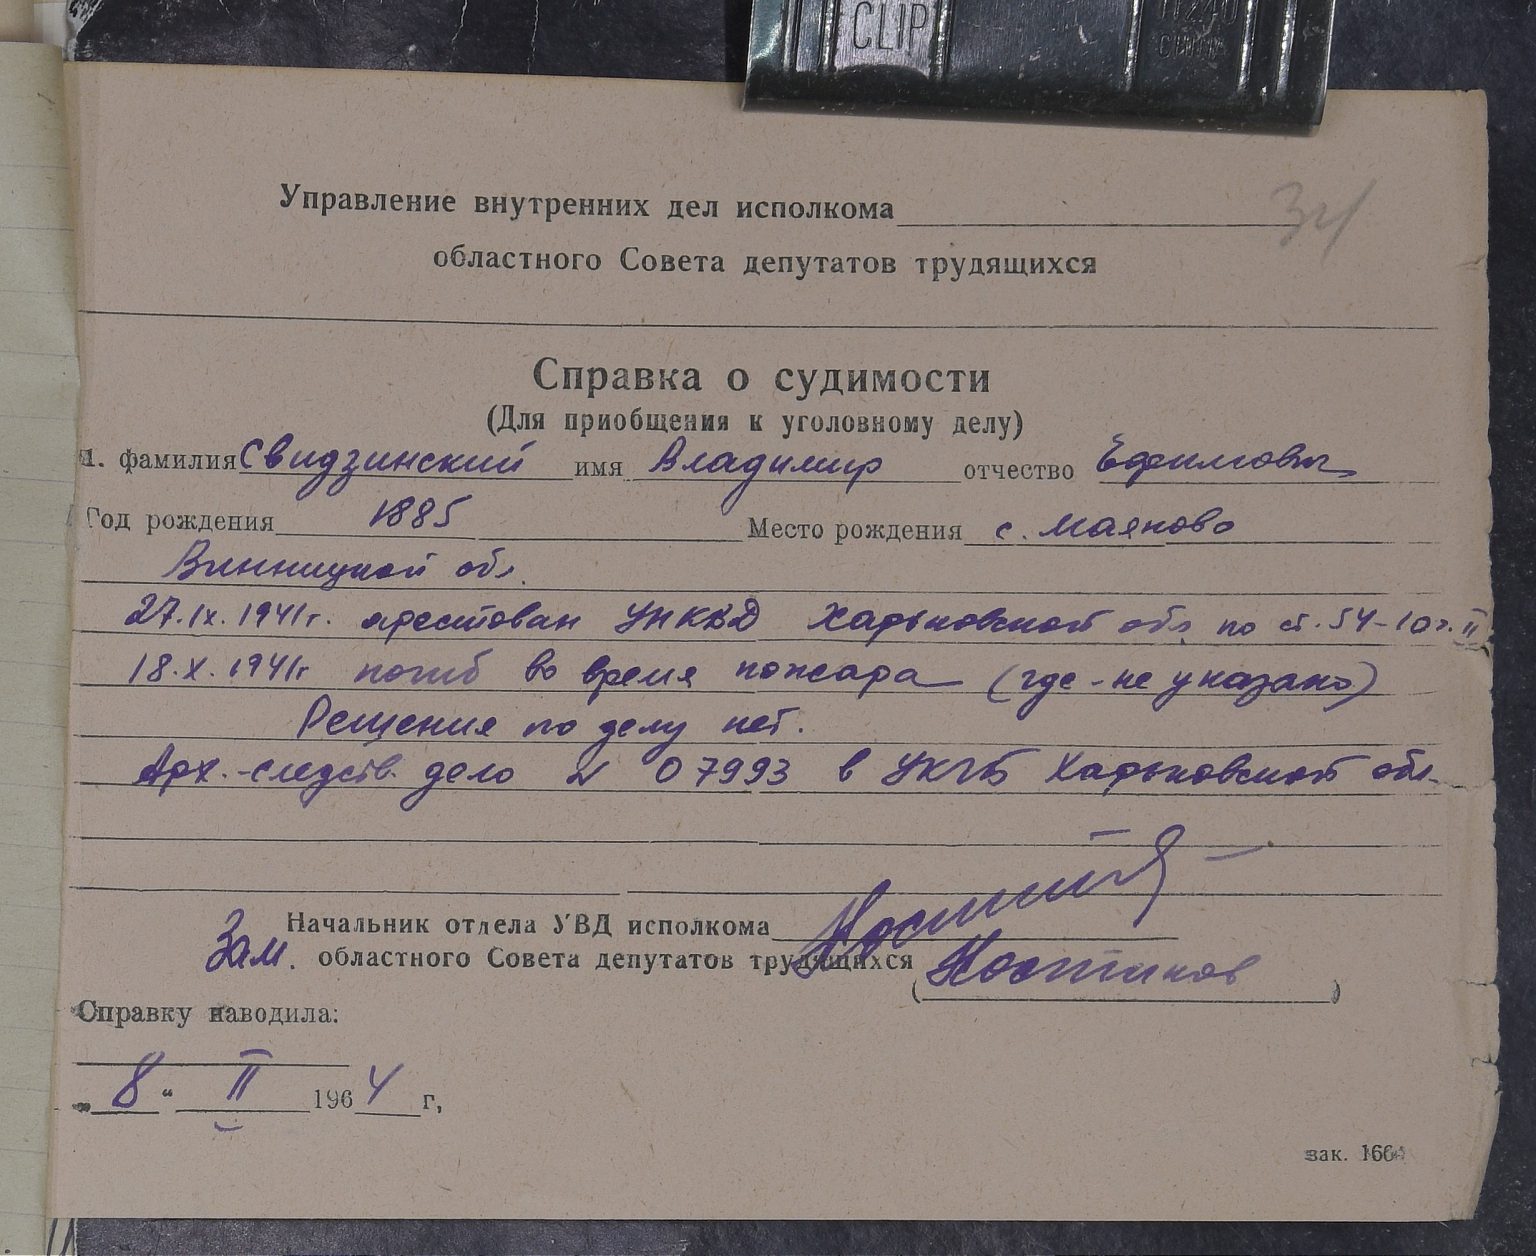 CLIP
34
Управление внутренних дел исполкома
областного Совета депутатов трудящихся
Справка о судимости
(Для приобщения к уголовному делу)
1. фамилия Свидзинский имя Владимир отчество Ефимович
Год рождения 1885 Место рождения с. Маяново
Винницкой обл.
27.IX.1941г. арестован УНКВД Харьковской обл по ст. 54-10 ч. II
18.X.1941г погиб во время пожара (где-не указано)
Решения по делу нет.
Арх.-следств. дело N 07993 в УКГБ Харьковской обл.
Начальник отдела УВД исполкома
Зам. областного Совета депутатов трудящихся
(Костиков)
Справку наводила:
„8“ II 1964 г,
зак. 166